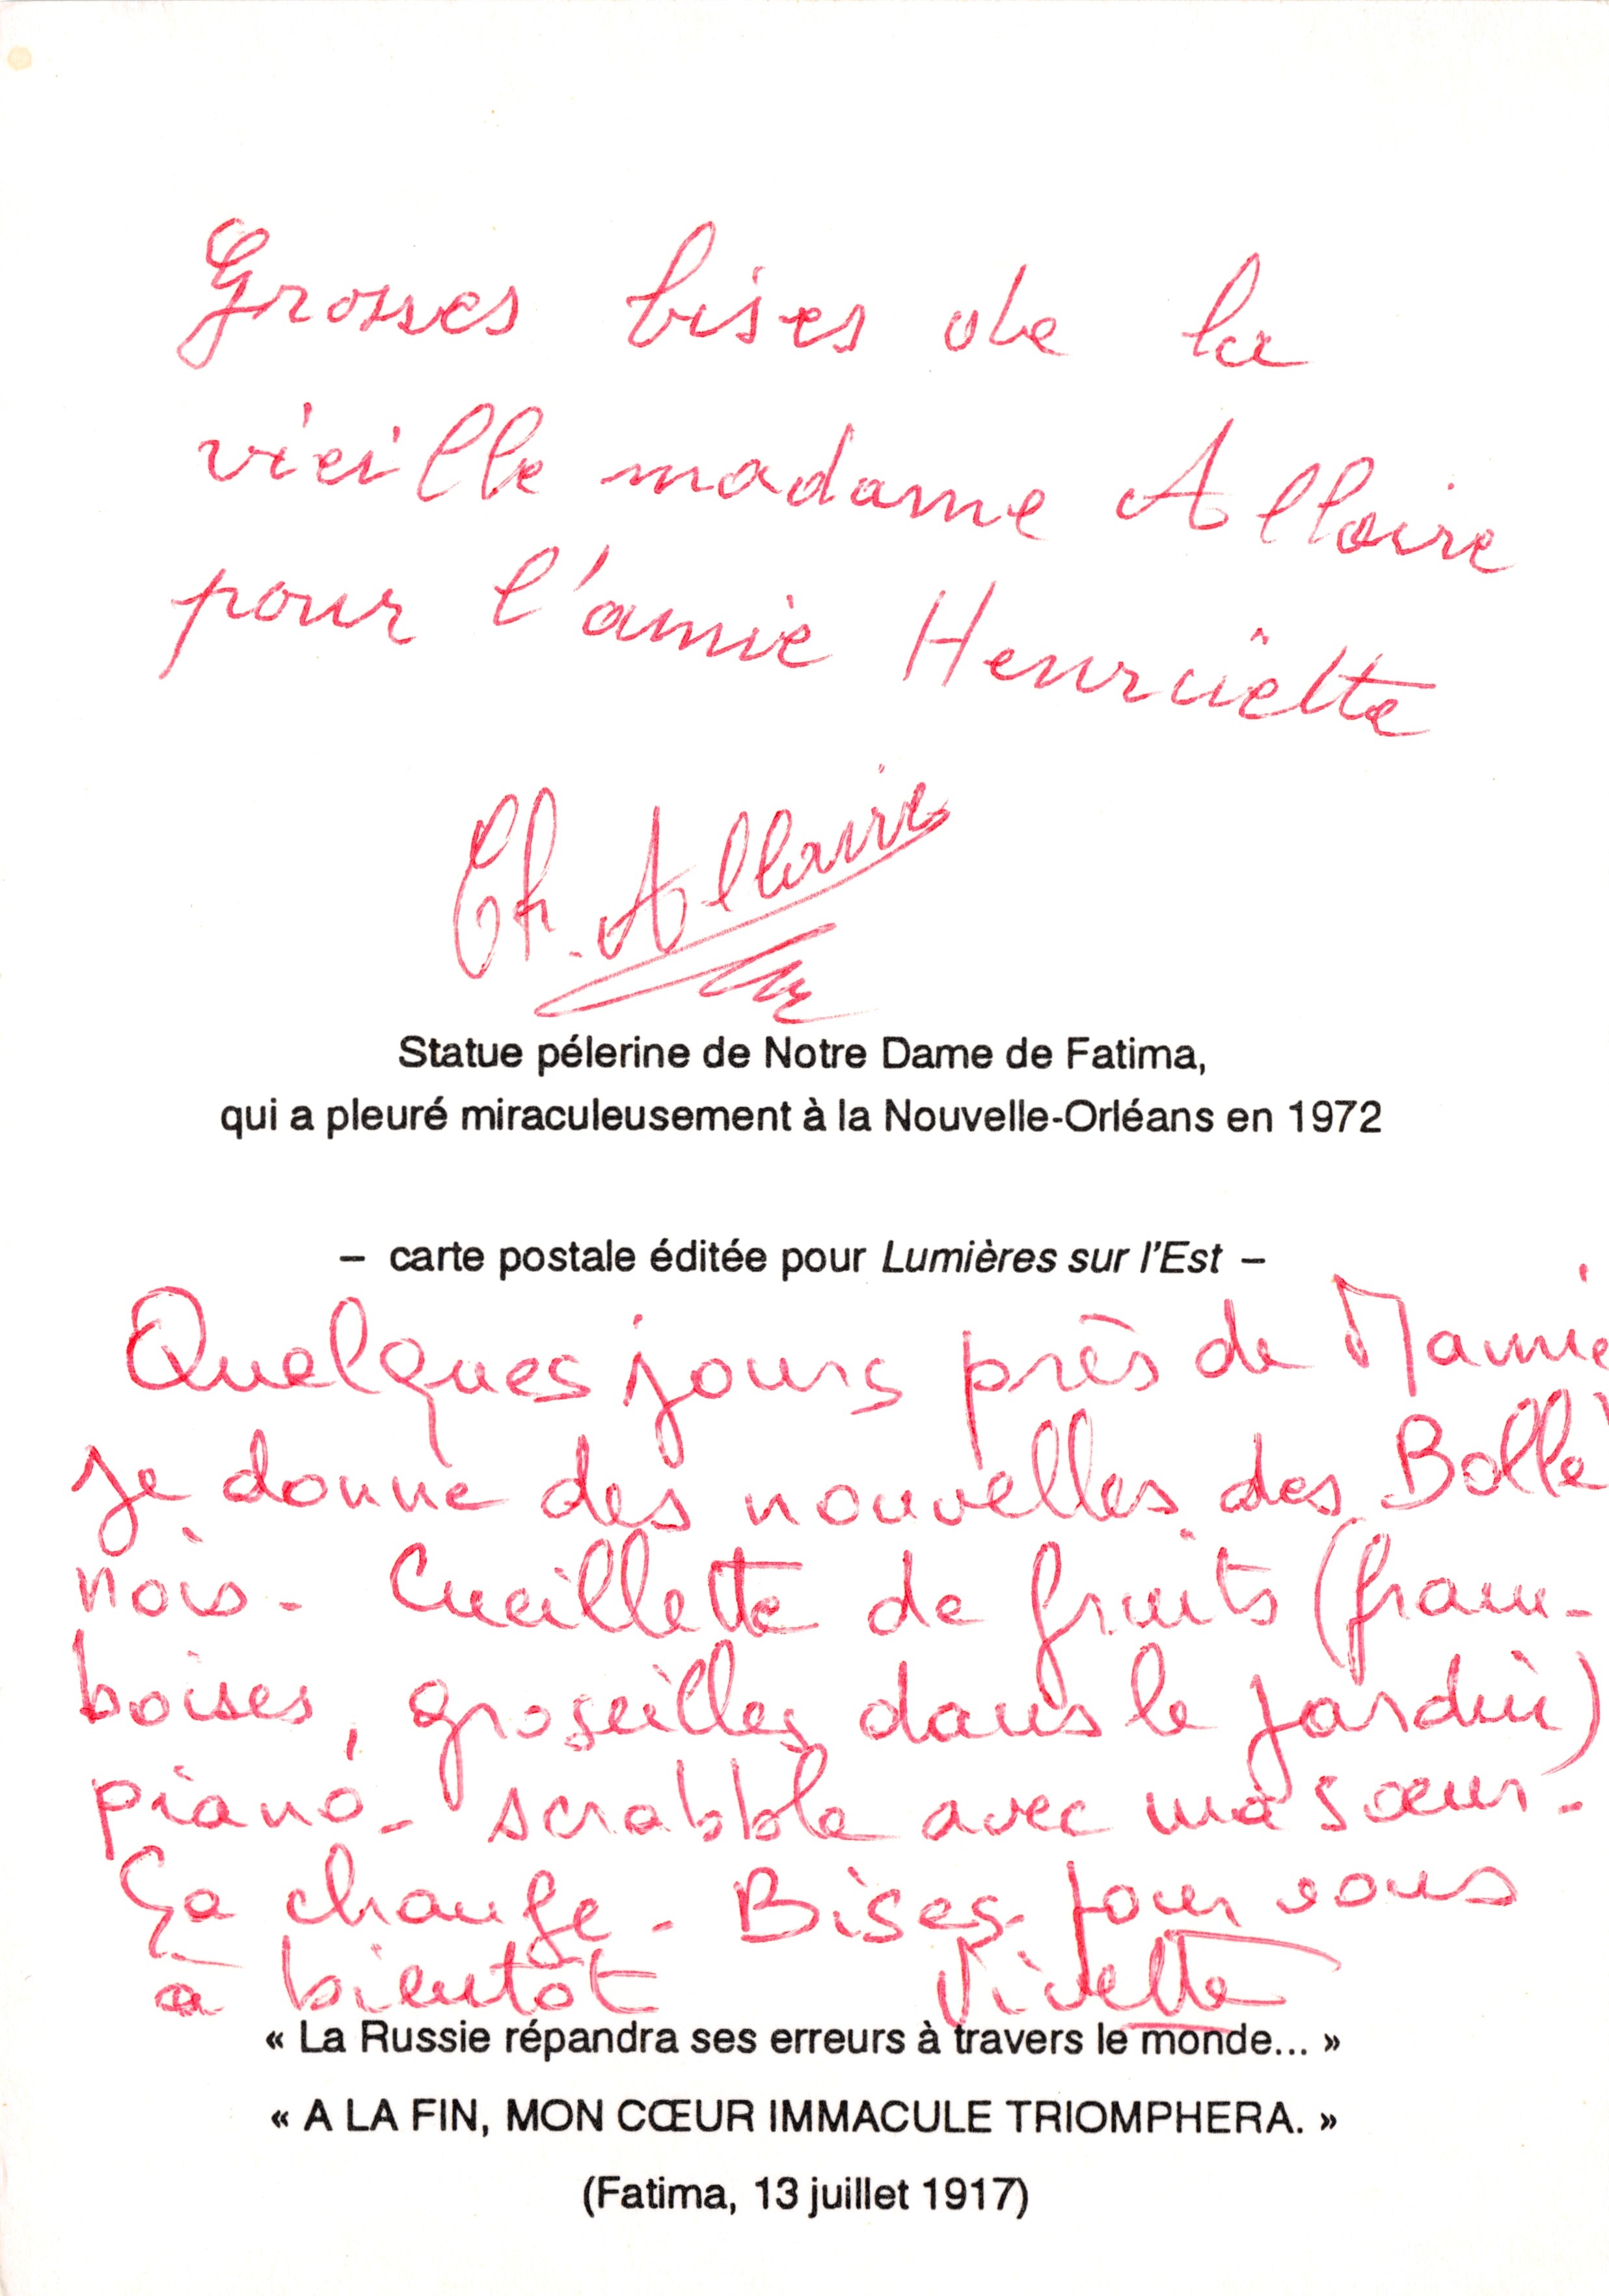 Grosses bises de la
vieille madame Alloire
pour l'amie Henriette
Ch. Alloire
Statue pélerine de Notre Dame de Fatima,
qui a pleuré miraculeusement à la Nouvelle-Orléans en 1972
– carte postale éditée pour Lumières sur l'Est –
Quelques jours près de Mamie
je donne des nouvelles des Bollè
nois - Cueillette de fruits (fram-
boises, groseilles dans le jardin)
piano - scrabble avec ma sœur -
Ça change - Bises pour vous
à bientôt Vivette
« La Russie répandra ses erreurs à travers le monde... »
« A LA FIN, MON CŒUR IMMACULE TRIOMPHERA. »
(Fatima, 13 juillet 1917)